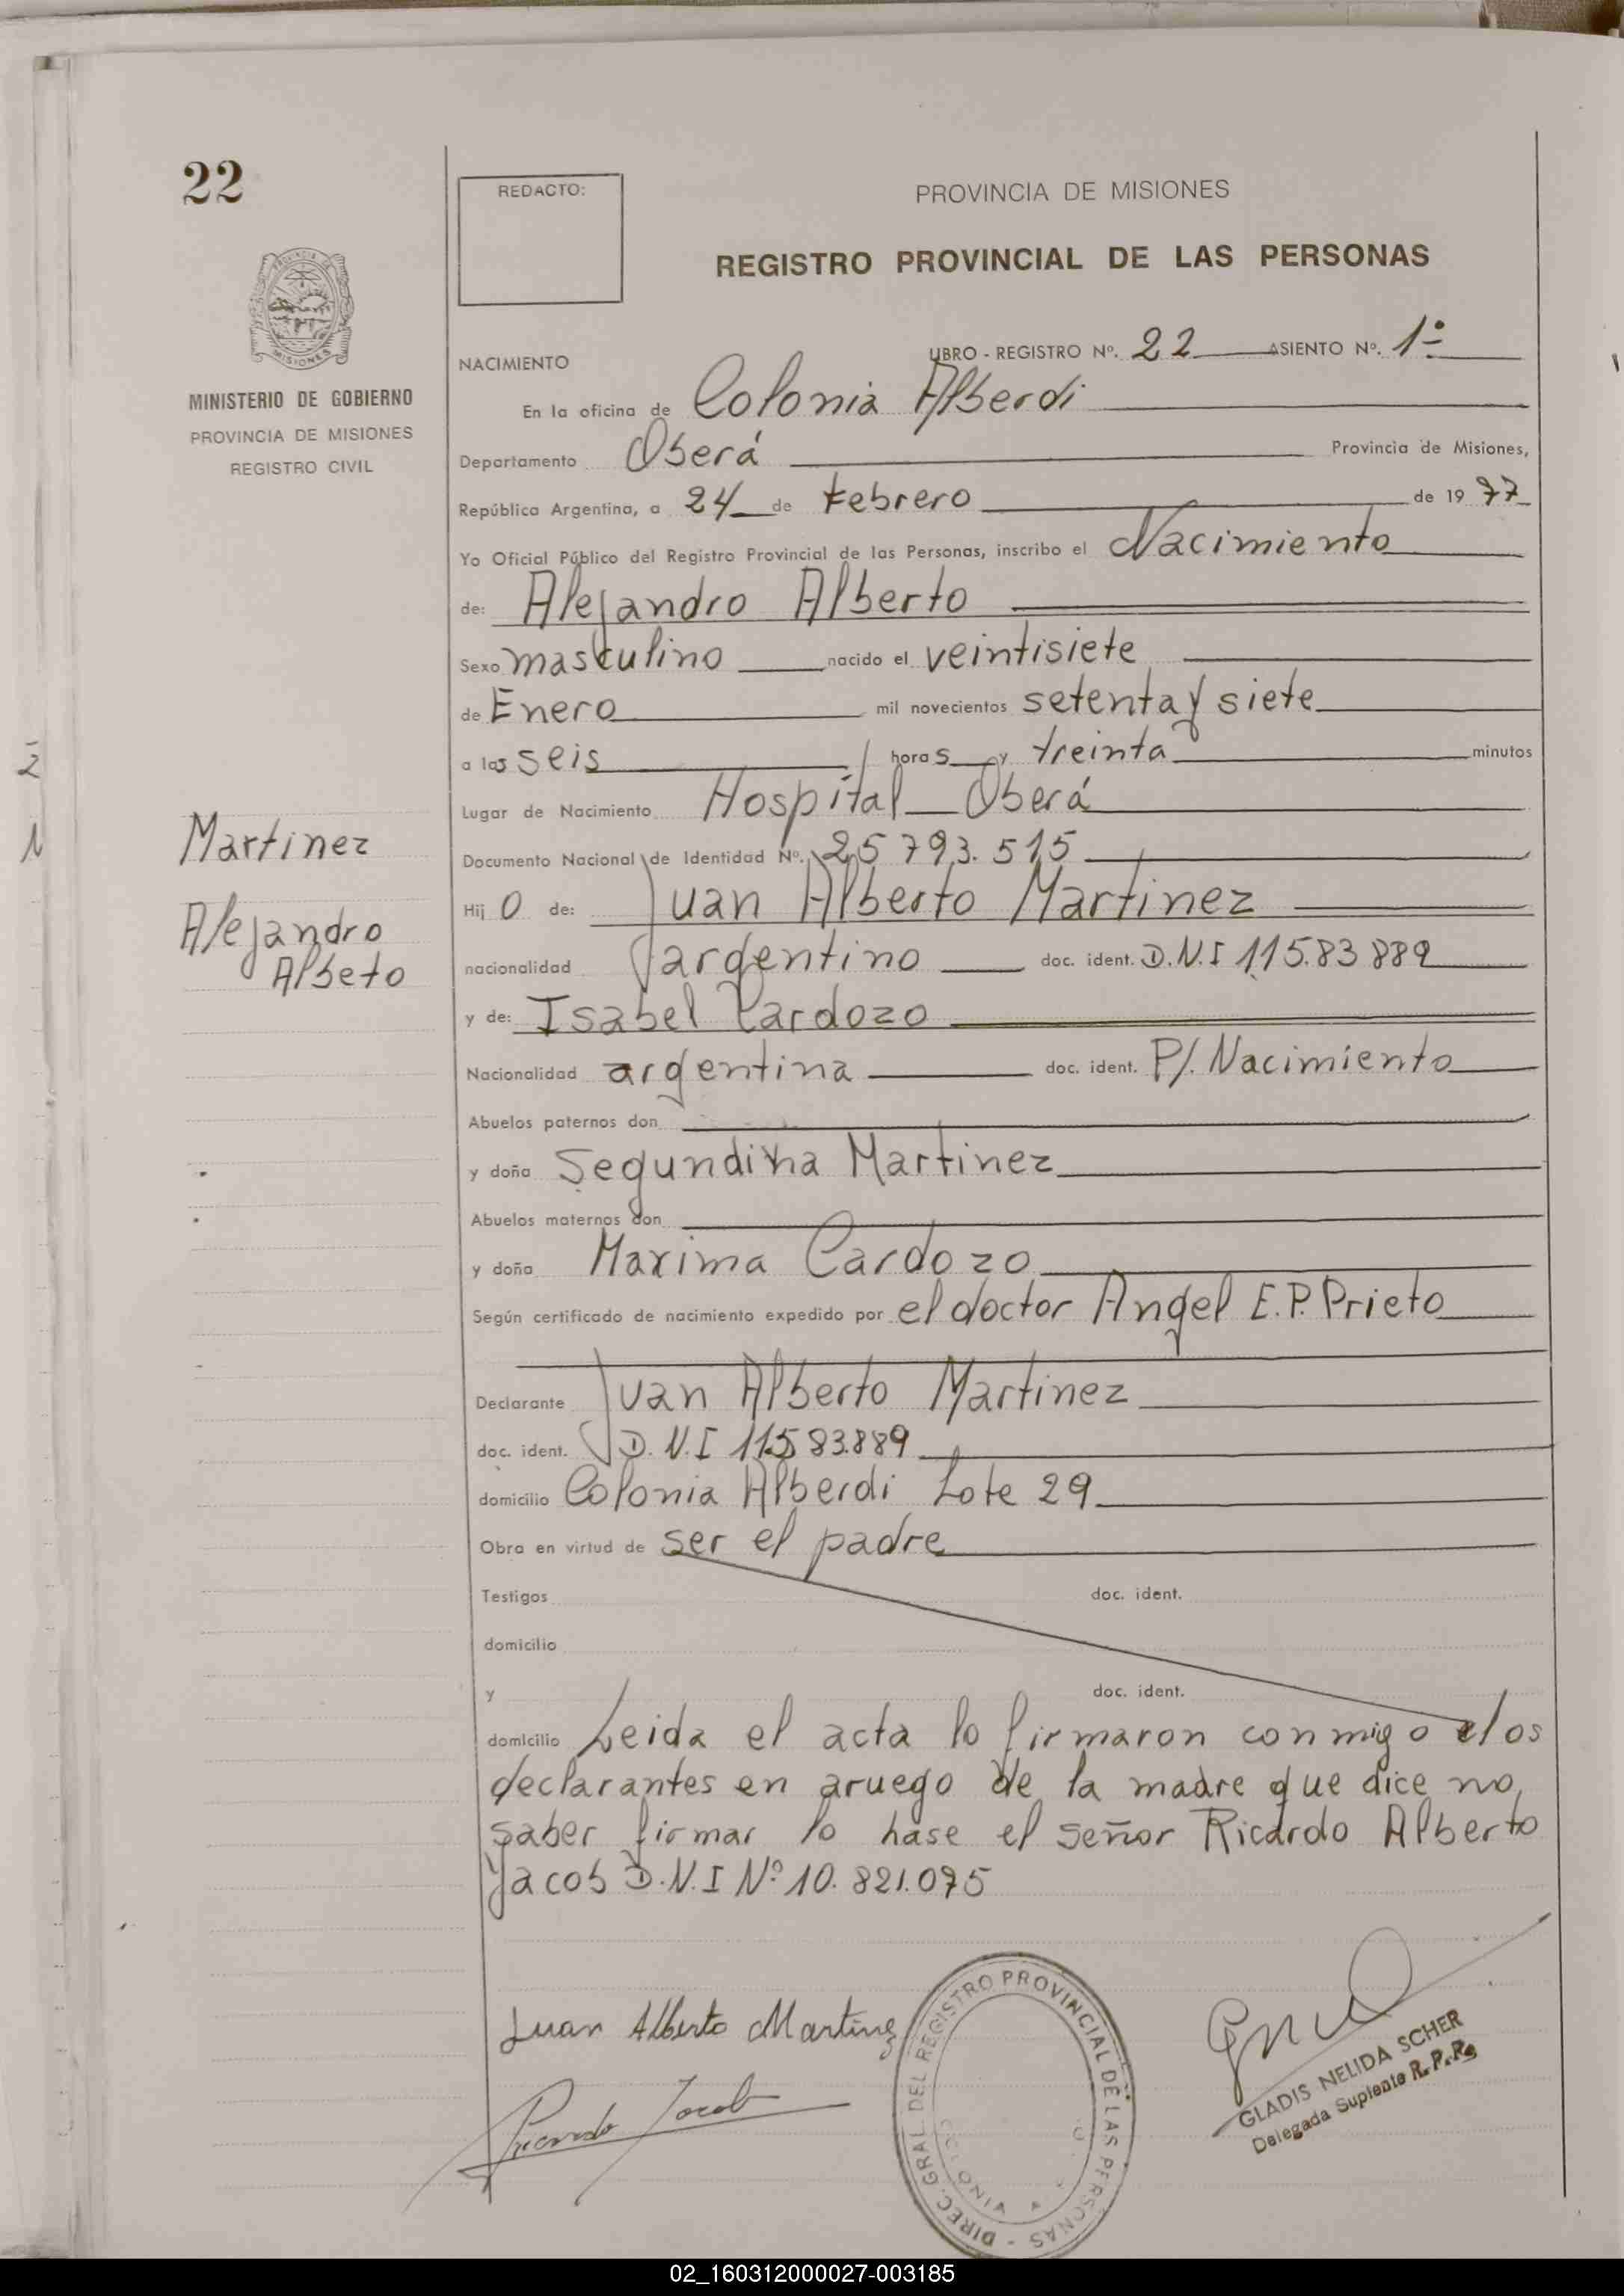 22
REDACTO:
PROVINCIA DE MISIONES
REGISTRO PROVINCIAL DE LAS PERSONAS
MINISTERIO DE GOBIERNO
PROVINCIA DE MISIONES
REGISTRO CIVIL
Martinez
Alejandro
Albeto
NACIMIENTO LIBRO - REGISTRO Nº. 22 ASIENTO Nº. 1º
En la oficina de Colonia Alberdi
Departamento Oberá Provincia de Misiones,
República Argentina, a 24 de Febrero de 1977
Yo Oficial Público del Registro Provincial de las Personas, inscribo el Nacimiento
de: Alejandro Alberto
Sexo masculino nacido el veintisiete
de Enero mil novecientos setenta y siete
a las seis horas y treinta minutos
Lugar de Nacimiento Hospital Oberá
Documento Nacional de Identidad Nº. 25793.515
Hijo de: Juan Alberto Martinez
nacionalidad argentino doc. ident. D.N.I 11583889
y de: Isabel Cardozo
Nacionalidad argentina doc. ident. P/. Nacimiento
Abuelos paternos don
y doña Segundina Martinez
Abuelos maternos don
y doña Maxima Cardozo
Según certificado de nacimiento expedido por el doctor Angel E.P. Prieto
Declarante Juan Alberto Martinez
doc. ident. D.N.I 11583.889
domicilio Colonia Alberdi Lote 29
Obra en virtud de ser el padre
Testigos doc. ident.
domicilio
y doc. ident.
domicilio Leida el acta lo firmaron conmigo los
declarantes en aruego de la madre que dice no
saber firmar lo hase el señor Ricardo Alberto
Jacob D.N.I Nº 10.821.075
Juan Alberto Martinez
Ricardo Jacob
DIREC. GRAL. DEL REGISTRO PROVINCIAL DE LAS PERSONAS
GLADIS NELIDA SCHER
Delegada Suplente R.P.P.
02_160312000027-003185